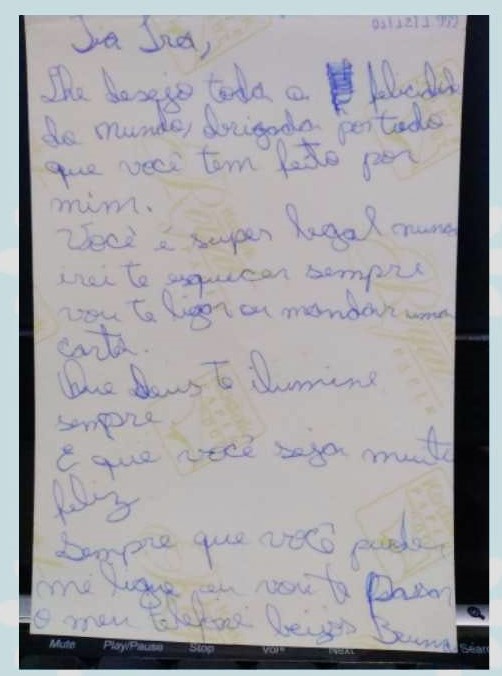 Tia Ira,
Lhe desejo toda a felicida
do mundo, obrigada por tudo
que você tem feito por
mim.
Você é super legal nunca
irei te esquecer sempre
vou te ligar ou mandar uma
carta.
Que Deus te ilumine
sempre.
E que você seja muito
feliz
Sempre que você puder
me ligue eu vou te passar
o meu telefone beijos Bruna
Mute Play/Pause Stop Vol+ Next Sear